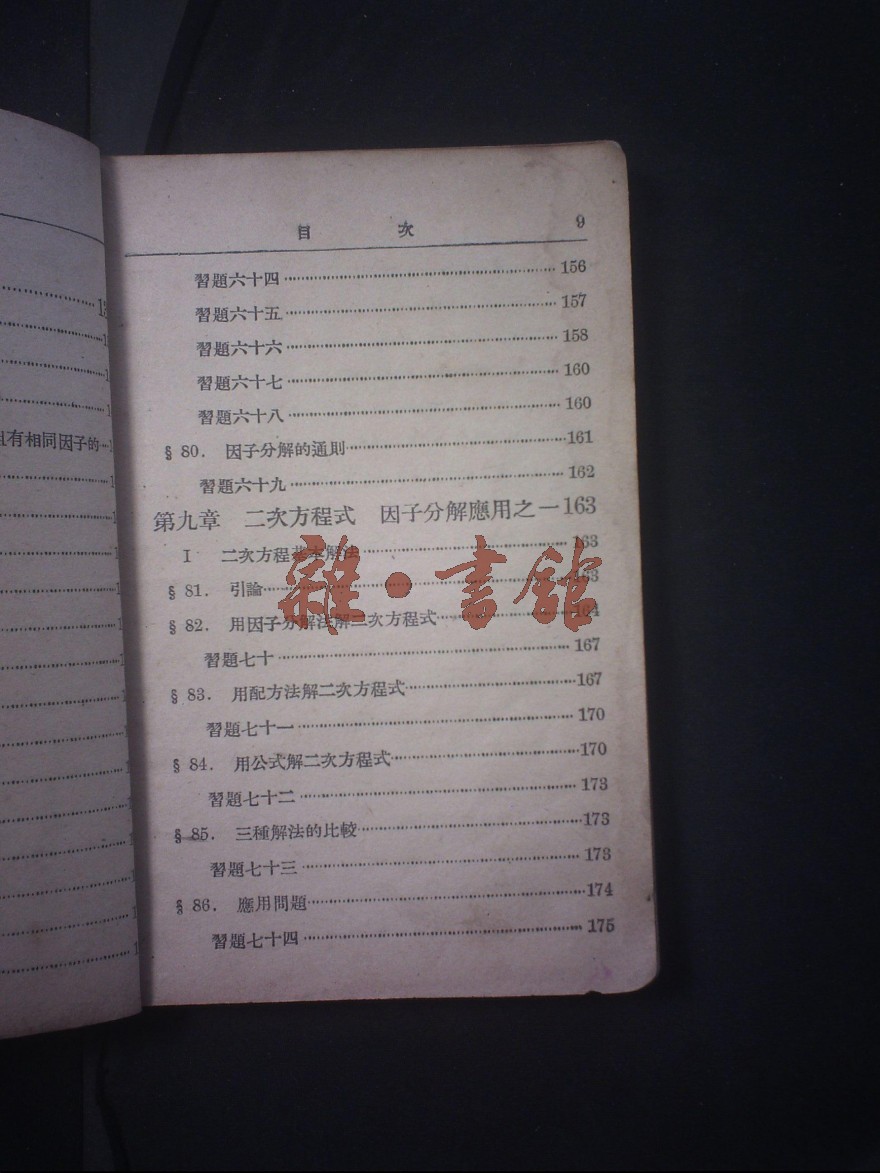 目 次 9
習題六十四 156
習題六十五 157
習題六十六 158
習題六十七 160
習題六十八 160
§ 80. 因子分解的通則 161
習題六十九 162
第九章 二次方程式 因子分解應用之一 163
I 二次方程基本解法 163
§ 81. 引論 163
§ 82. 用因子分解法解二次方程式 164
習題七十 167
§ 83. 用配方法解二次方程式 167
習題七十一 170
§ 84. 用公式解二次方程式 170
習題七十二 173
§ 85. 三種解法的比較 173
習題七十三 173
§ 86. 應用問題 174
習題七十四 175
有相同因子的
雜·書館